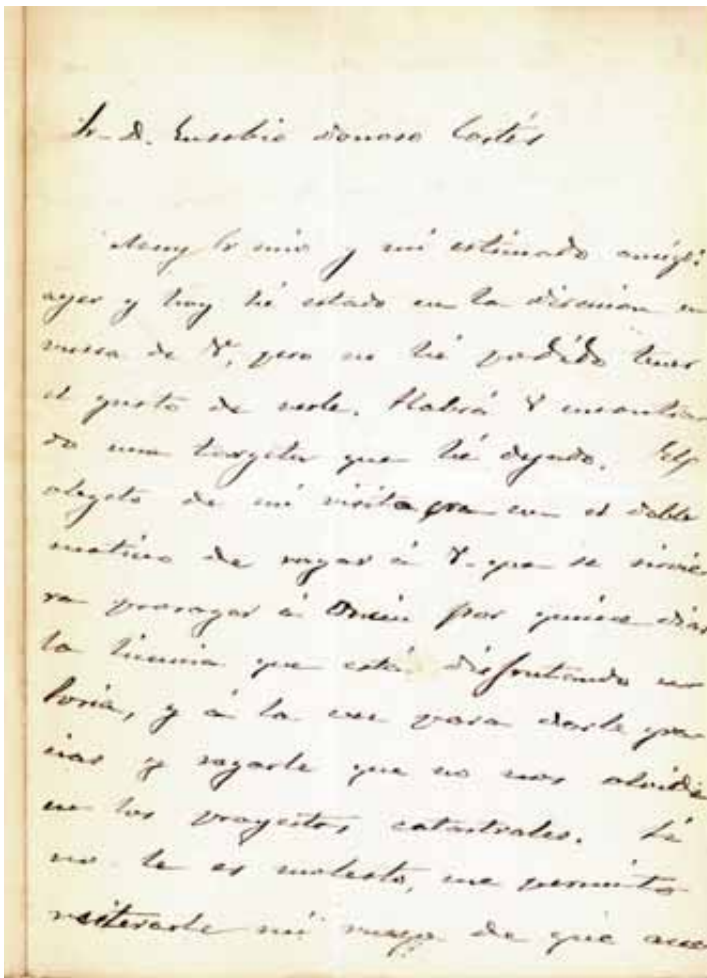 Sr. D. Eusebio Donoso Cortés
Muy Sr mio y mi estimado amigo:
ayer y hoy hé estado en la direccion en
busca de V, pero no hé podido tener
el gusto de verle. Habrá V encontra
do una targeta que hé dejado. El
obgeto de mi visita era con el doble
motivo de rogar á V. que se sirvie
ra prorogar á por quince dias
la licencia que está disfrutando en
Soria, y á la vez para darle gra
cias y rogarle que no nos olvide
en los proyectos catastrales. Si
no le es molesto, me permito
reiterarle mi ruego de que